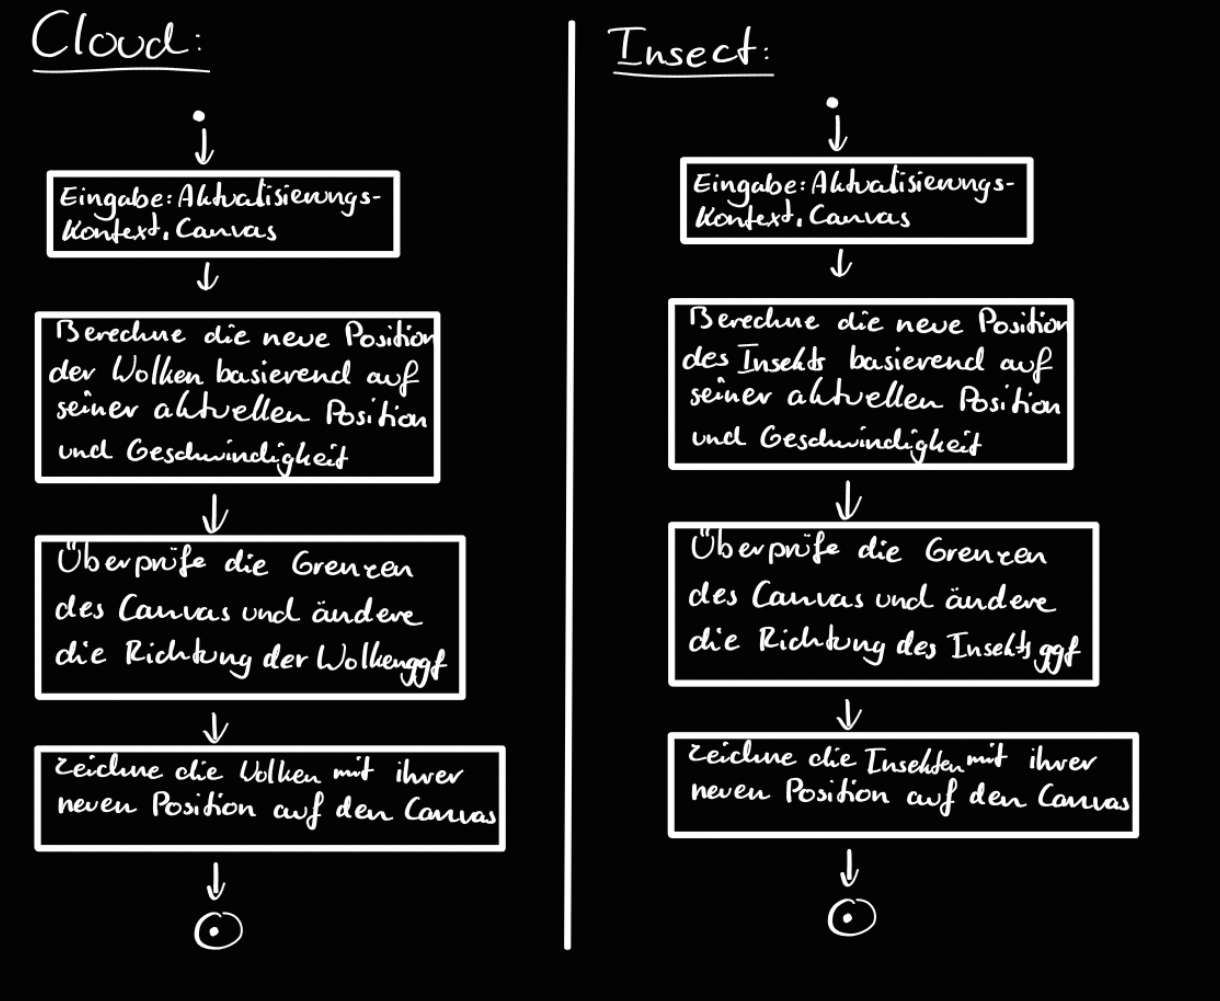 Cloud:
Eingabe: Aktualisierungs-
Kontext, Canvas
Berechne die neue Position
der Wolken basierend auf
seiner aktuellen Position
und Geschwindigkeit
Überprüfe die Grenzen
des Canvas und ändere
die Richtung der Wolken ggf
Zeichne die Wolken mit ihrer
neuen Position auf den Canvas
Insect:
Eingabe: Aktualisierungs-
Kontext, Canvas
Berechne die neue Position
des Insekts basierend auf
seiner aktuellen Position
und Geschwindigkeit
Überprüfe die Grenzen
des Canvas und ändere
die Richtung des Insekts ggf
Zeichne die Insekten mit ihrer
neuen Position auf den Canvas